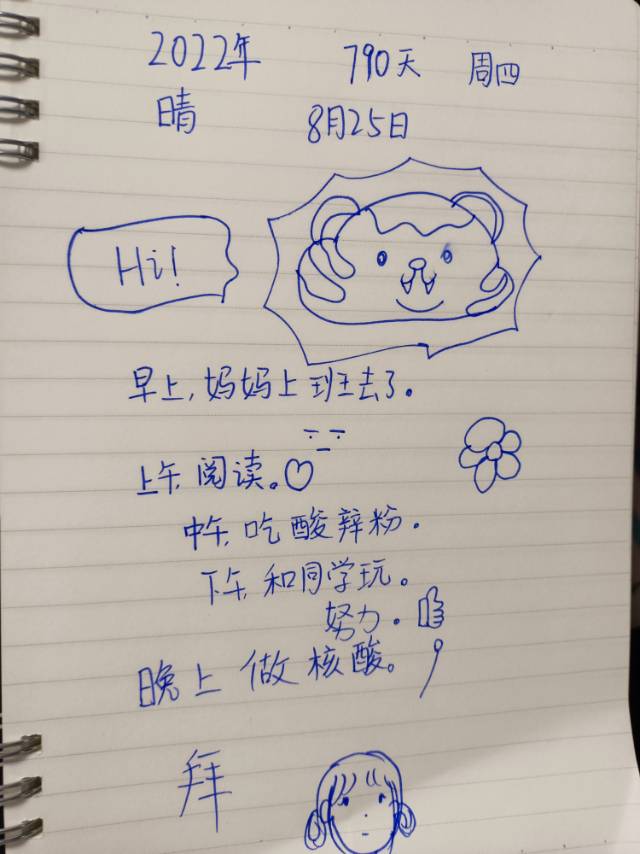 2022年 790天 周四
晴 8月25日
Hi!
早上,妈妈上班去了。
上午,阅读。
中午,吃酸辣粉.
下午,和同学玩。
努力.
晚上做核酸。
拜